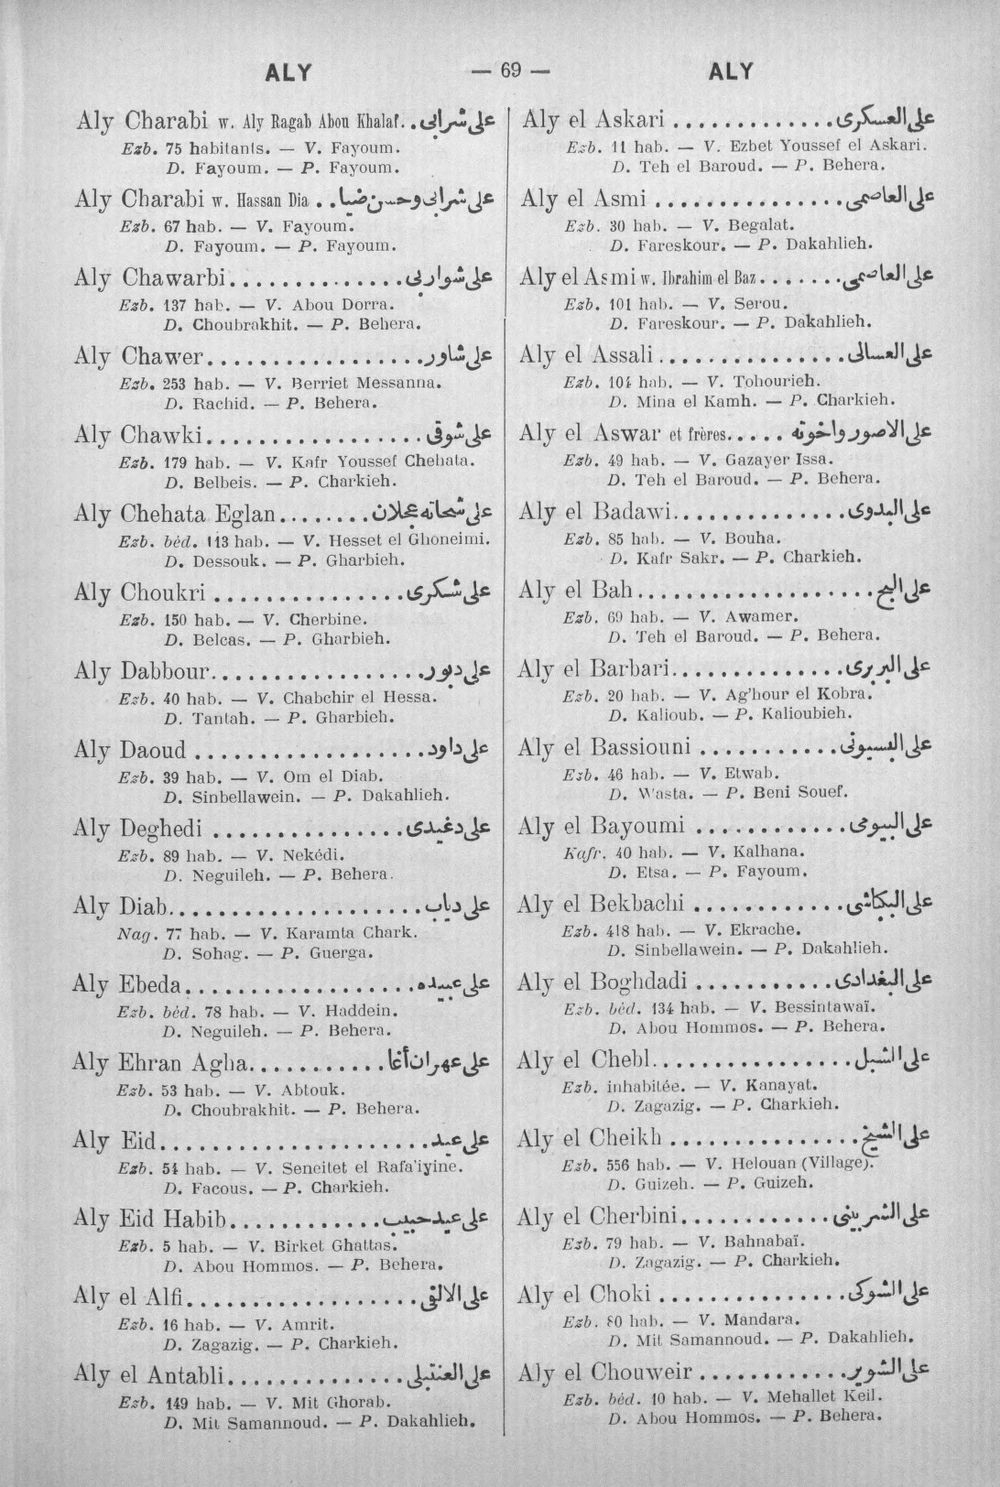 ALY — 69 — ALY
Aly Charabi w. Aly Ragab Abou Khalaf. . على شرابى
Ezb. 75 habitants. — V. Fayoum.
D. Fayoum. — P. Fayoum.
Aly Charabi w. Hassan Dia . . على شرابى وحسن ضيا
Ezb. 67 hab. — V. Fayoum.
D. Fayoum. — P. Fayoum.
Aly Chawarbi. . . . . . . . . . . . . . على شواربى
Ezb. 137 hab. — V. Abou Dorra.
D. Choubrakhit. — P. Behera.
Aly Chawer. . . . . . . . . . . . . . . . . على شاور
Ezb. 253 hab. — V. Berriet Messanna.
D. Rachid. — P. Behera.
Aly Chawki. . . . . . . . . . . . . . . . . على شوقى
Ezb. 179 hab. — V. Kafr Youssef Chehata.
D. Belbeis. — P. Charkieh.
Aly Chehata Eglan. . . . . . . . على شحاته عجلان
Ezb. béd. 113 hab. — V. Hesset el Ghoneimi.
D. Dessouk. — P. Gharbieh.
Aly Choukri . . . . . . . . . . . . . . . على شكرى
Ezb. 150 hab. — V. Cherbine.
D. Belcas. — P. Gharbieh.
Aly Dabbour. . . . . . . . . . . . . . . . . على دبور
Ezb. 40 hab. — V. Chabchir el Hessa.
D. Tantah. — P. Gharbieh.
Aly Daoud . . . . . . . . . . . . . . . . . . على داود
Ezb. 39 hab. — V. Om el Diab.
D. Sinbellawein. — P. Dakahlieh.
Aly Deghedi . . . . . . . . . . . . . . . على دغيدى
Ezb. 89 hab. — V. Nekédi.
D. Neguileh. — P. Behera.
Aly Diab. . . . . . . . . . . . . . . . . . . . على دياب
Nag. 77 hab. — V. Karamta Chark.
D. Sohag. — P. Guerga.
Aly Ebeda. . . . . . . . . . . . . . . . . . على عبيده
Ezb. béd. 78 hab. — V. Haddein.
D. Neguileh. — P. Behera.
Aly Ehran Agha. . . . . . . . . . . على عهران أغا
Ezb. 53 hab. — V. Abtouk.
D. Choubrakhit. — P. Behera.
Aly Eid. . . . . . . . . . . . . . . . . . . . . على عيد
Ezb. 54 hab. — V. Seneitet el Rafa'iyine.
D. Facous. — P. Charkieh.
Aly Eid Habib. . . . . . . . . . . . على عيد حبيب
Ezb. 5 hab. — V. Birket Ghattas.
D. Abou Hommos. — P. Behera.
Aly el Alfi. . . . . . . . . . . . . . . . . . على الالفى
Ezb. 16 hab. — V. Amrit.
D. Zagazig. — P. Charkieh.
Aly el Antabli. . . . . . . . . . . . . . على العنتبلى
Ezb. 149 hab. — V. Mit Ghorab.
D. Mit Samannoud. — P. Dakahlieh.
Aly el Askari . . . . . . . . . . . . . على العسكرى
Ezb. 11 hab. — V. Ezbet Youssef el Askari.
D. Teh el Baroud. — P. Behera.
Aly el Asmi . . . . . . . . . . . . . . . على العاصمى
Ezb. 30 hab. — V. Begalat.
D. Fareskour. — P. Dakahlieh.
Aly el Asmi w. Ibrahim el Baz . . . . . . . على العاصمى
Ezb. 101 hab. — V. Serou.
D. Fareskour. — P. Dakahlieh.
Aly el Assali . . . . . . . . . . . . . . . على العسالى
Ezb. 104 hab. — V. Tohourieh.
D. Mina el Kamh. — P. Charkieh.
Aly el Aswar et frères. . . . . على الاصور واخوته
Ezb. 49 hab. — V. Gazayer Issa.
D. Teh el Baroud. — P. Behera.
Aly el Badawi. . . . . . . . . . . . . . على البدوى
Ezb. 85 hab. — V. Bouha.
D. Kafr Sakr. — P. Charkieh.
Aly el Bah . . . . . . . . . . . . . . . . . . . على البح
Ezb. 69 hab. — V. Awamer.
D. Teh el Baroud. — P. Behera.
Aly el Barbari. . . . . . . . . . . . . . على البربرى
Ezb. 20 hab. — V. Ag'hour el Kobra.
D. Kalioub. — P. Kalioubieh.
Aly el Bassiouni . . . . . . . . . . . على البسيونى
Ezb. 46 hab. — V. Etwab.
D. Wasta. — P. Beni Souef.
Aly el Bayoumi . . . . . . . . . . . . على البيومى
Kafr. 40 hab. — V. Kalhana.
D. Etsa. — P. Fayoum.
Aly el Bekbachi . . . . . . . . . . . . على البكباشى
Ezb. 418 hab. — V. Ekrache.
D. Sinbellawein. — P. Dakahlieh.
Aly el Boghdadi . . . . . . . . . . . على البغدادى
Ezb. béd. 134 hab. — V. Bessintawaï.
D. Abou Hommos. — P. Behera.
Aly el Chebl. . . . . . . . . . . . . . . . على الشبل
Ezb. inhabitée. — V. Kanayat.
D. Zagazig. — P. Charkieh.
Aly el Cheikh . . . . . . . . . . . . . . . على الشيخ
Ezb. 556 hab. — V. Helouan (Village).
D. Guizeh. — P. Guizeh.
Aly el Cherbini. . . . . . . . . . . . . على الشربينى
Ezb. 79 hab. — V. Bahnabaï.
D. Zagazig. — P. Charkieh.
Aly el Choki . . . . . . . . . . . . . . . على الشوكى
Ezb. 80 hab. — V. Mandara.
D. Mit Samannoud. — P. Dakahlieh.
Aly el Chouweir . . . . . . . . . . . . على الشوير
Ezb. béd. 10 hab. — V. Mehallet Keil.
D. Abou Hommos. — P. Behera.